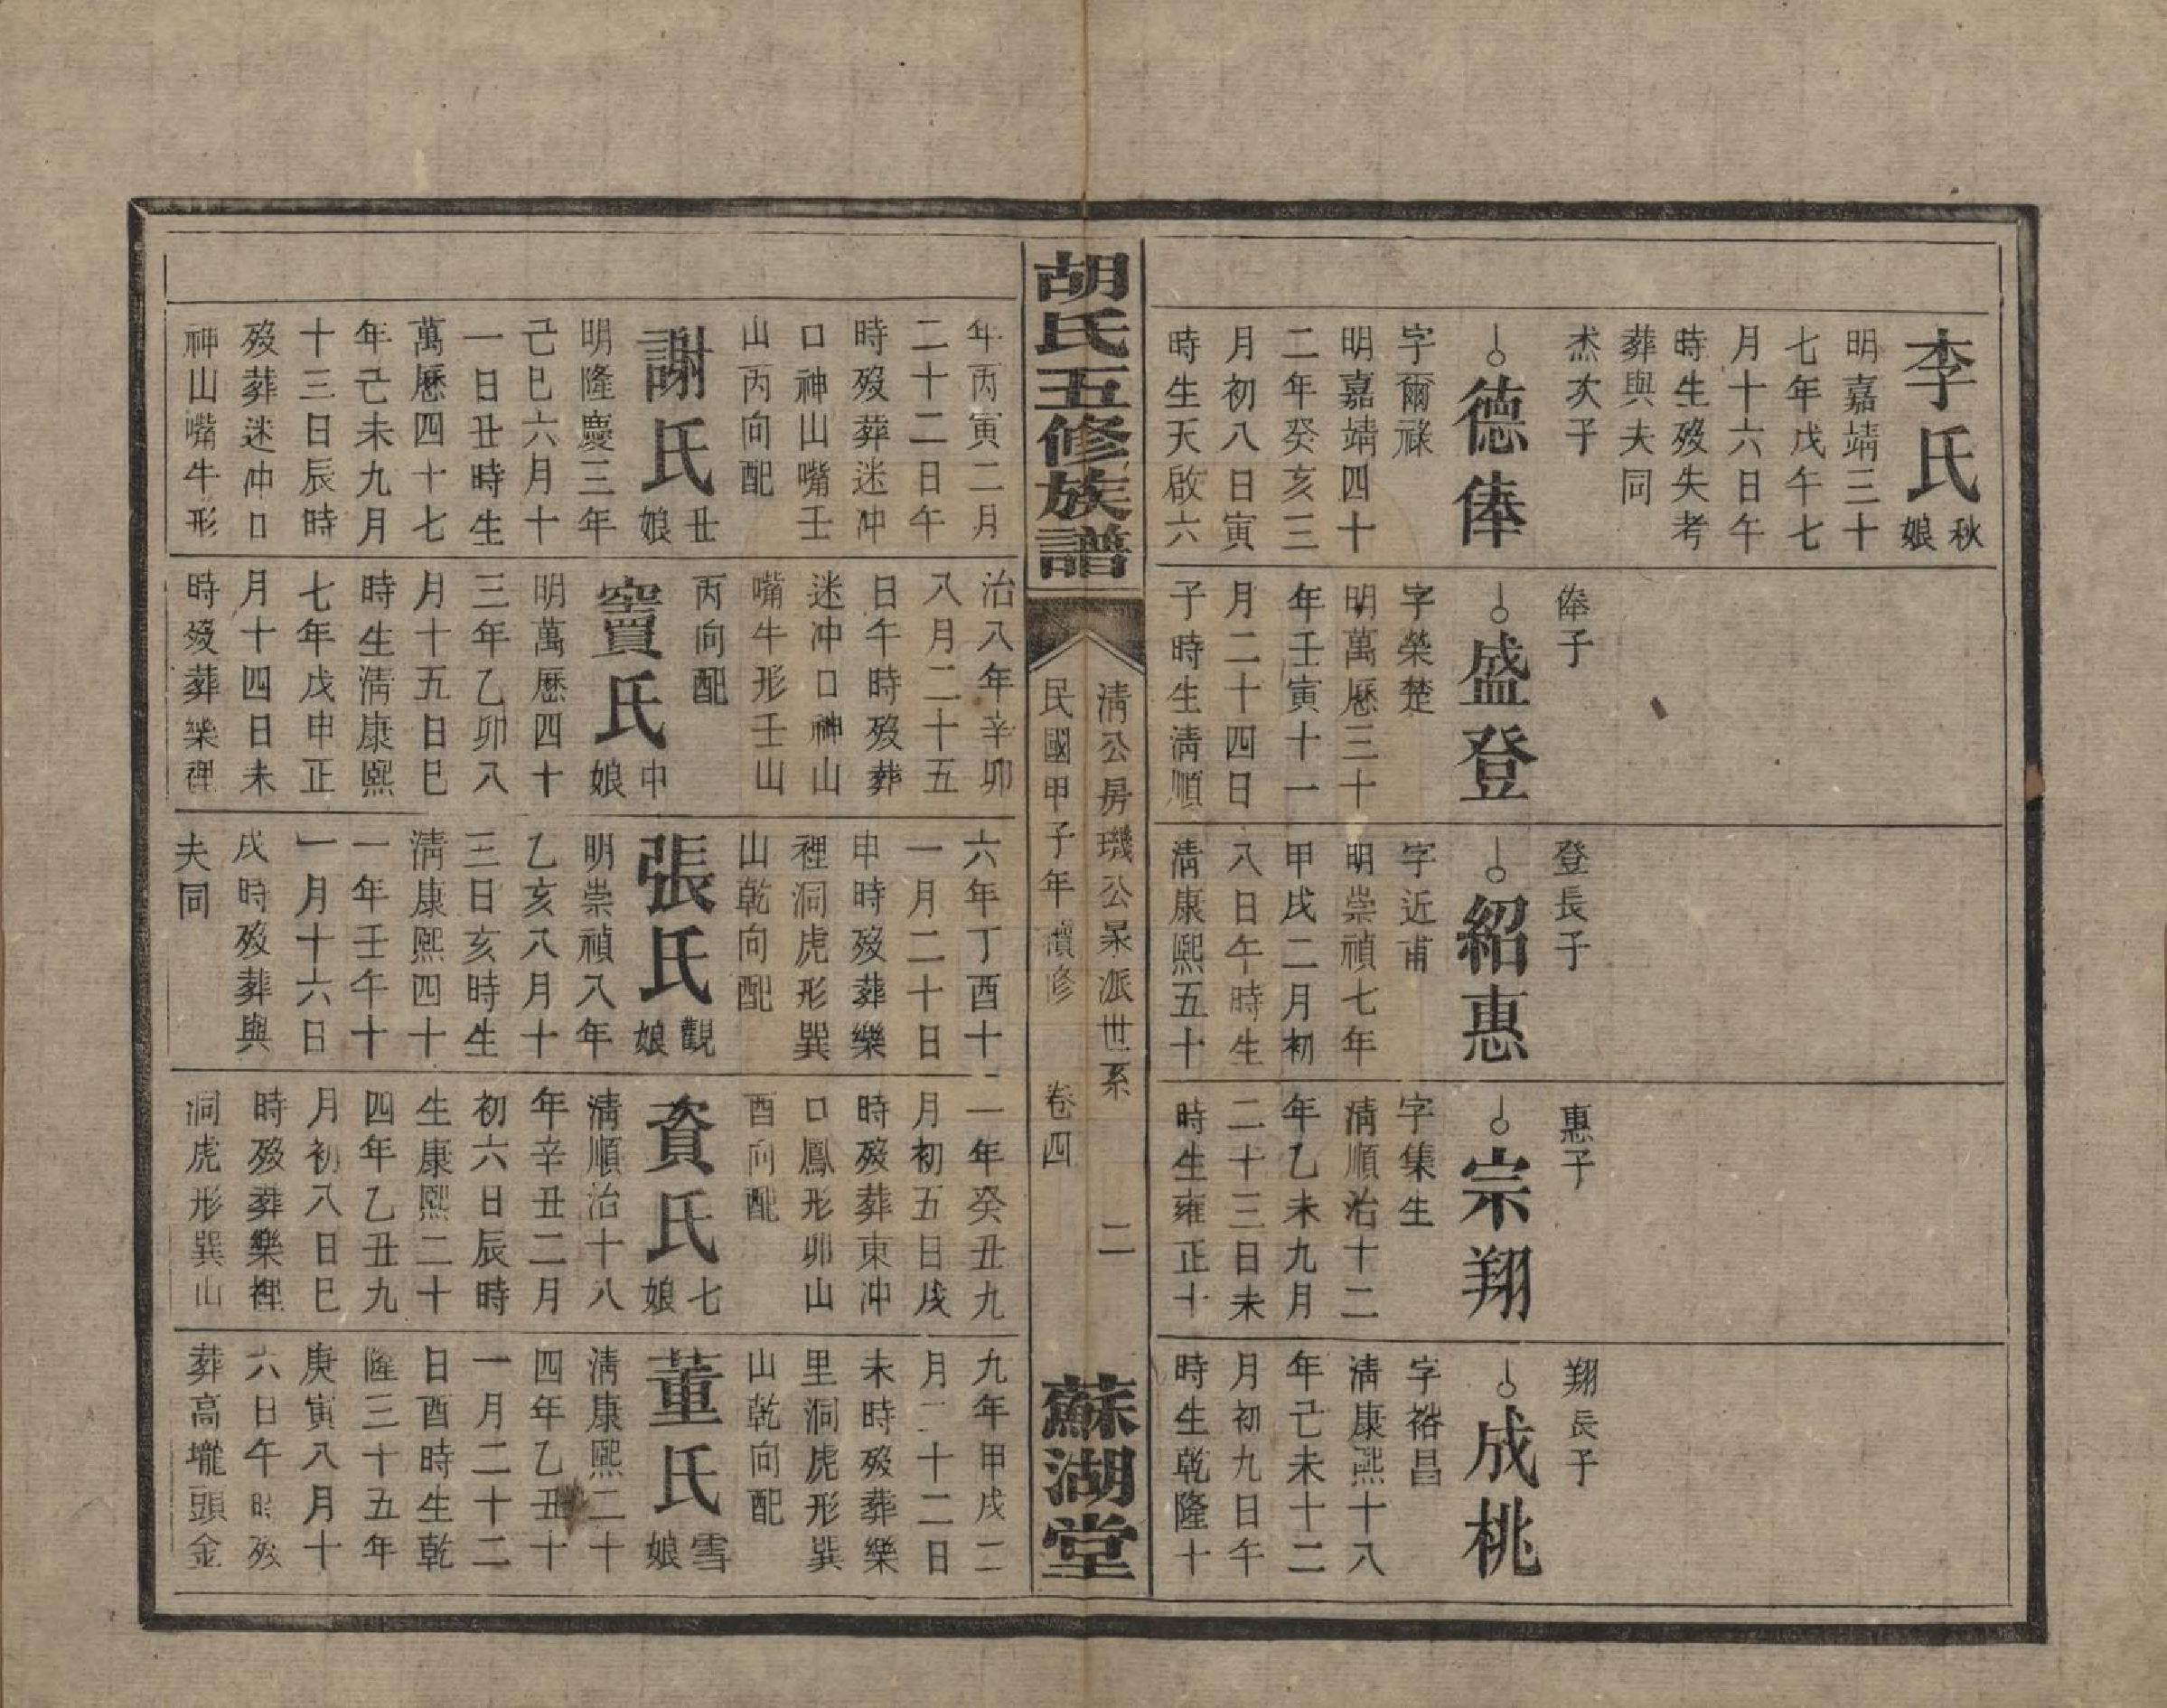 李氏秋娘
明嘉靖三十
七年戊午七
月十六日午
時生歿失考
葬與夫同
杰次子
德俸
字爾祿
明嘉靖四十
二年癸亥三
月初八日寅
時生天啟六
俸子
盛登
字榮楚
明萬曆三十
年壬寅十一
月二十四日
子時生淸順
登長子
紹惠
字近甫
明崇禎七年
甲戌二月初
八日午時生
淸康熙五十
惠子
宗翔
字集生
淸順治十二
年乙未九月
二十三日未
時生雍正十
翔長子
成桃
字裕昌
淸康熙十八
年己未十二
月初九日午
時生乾隆十
胡氏五修族譜
淸公房璣公杲派世系
二
民國甲子年續修
卷四
蘇湖堂
年丙寅二月
二十二日午
時歿葬迷冲
口神山嘴壬
山丙向配
謝氏丑娘
明隆慶三年
己巳六月十
一日丑時生
萬曆四十七
年己未九月
十三日辰時
歿葬迷冲口
神山嘴牛形
治八年辛卯
八月二十五
日午時歿葬
迷冲口神山
嘴牛形壬山
丙向配
竇氏中娘
明萬曆四十
三年乙卯八
月十五日巳
時生淸康熙
七年戊申正
月十四日未
時歿葬樂裡
六年丁酉十
一月二十日
申時歿葬樂
裡洞虎形巽
山乾向配
張氏觀娘
明崇禎八年
乙亥八月十
三日亥時生
淸康熙四十
一年壬午十
一月十六日
戌時歿葬與
夫同
一年癸丑九
月初五日戌
時歿葬東冲
口鳳形卯山
酉向配
資氏七娘
淸順治十八
年辛丑二月
初六日辰時
生康熙二十
四年乙丑九
月初八日巳
時歿葬樂裡
洞虎形巽山
九年甲戌二
月二十二日
未時歿葬樂
里洞虎形巽
山乾向配
董氏雪娘
淸康熙二十
四年乙丑十
一月二十二
日酉時生乾
隆三十五年
庚寅八月十
六日午時歿
葬高壠頭金